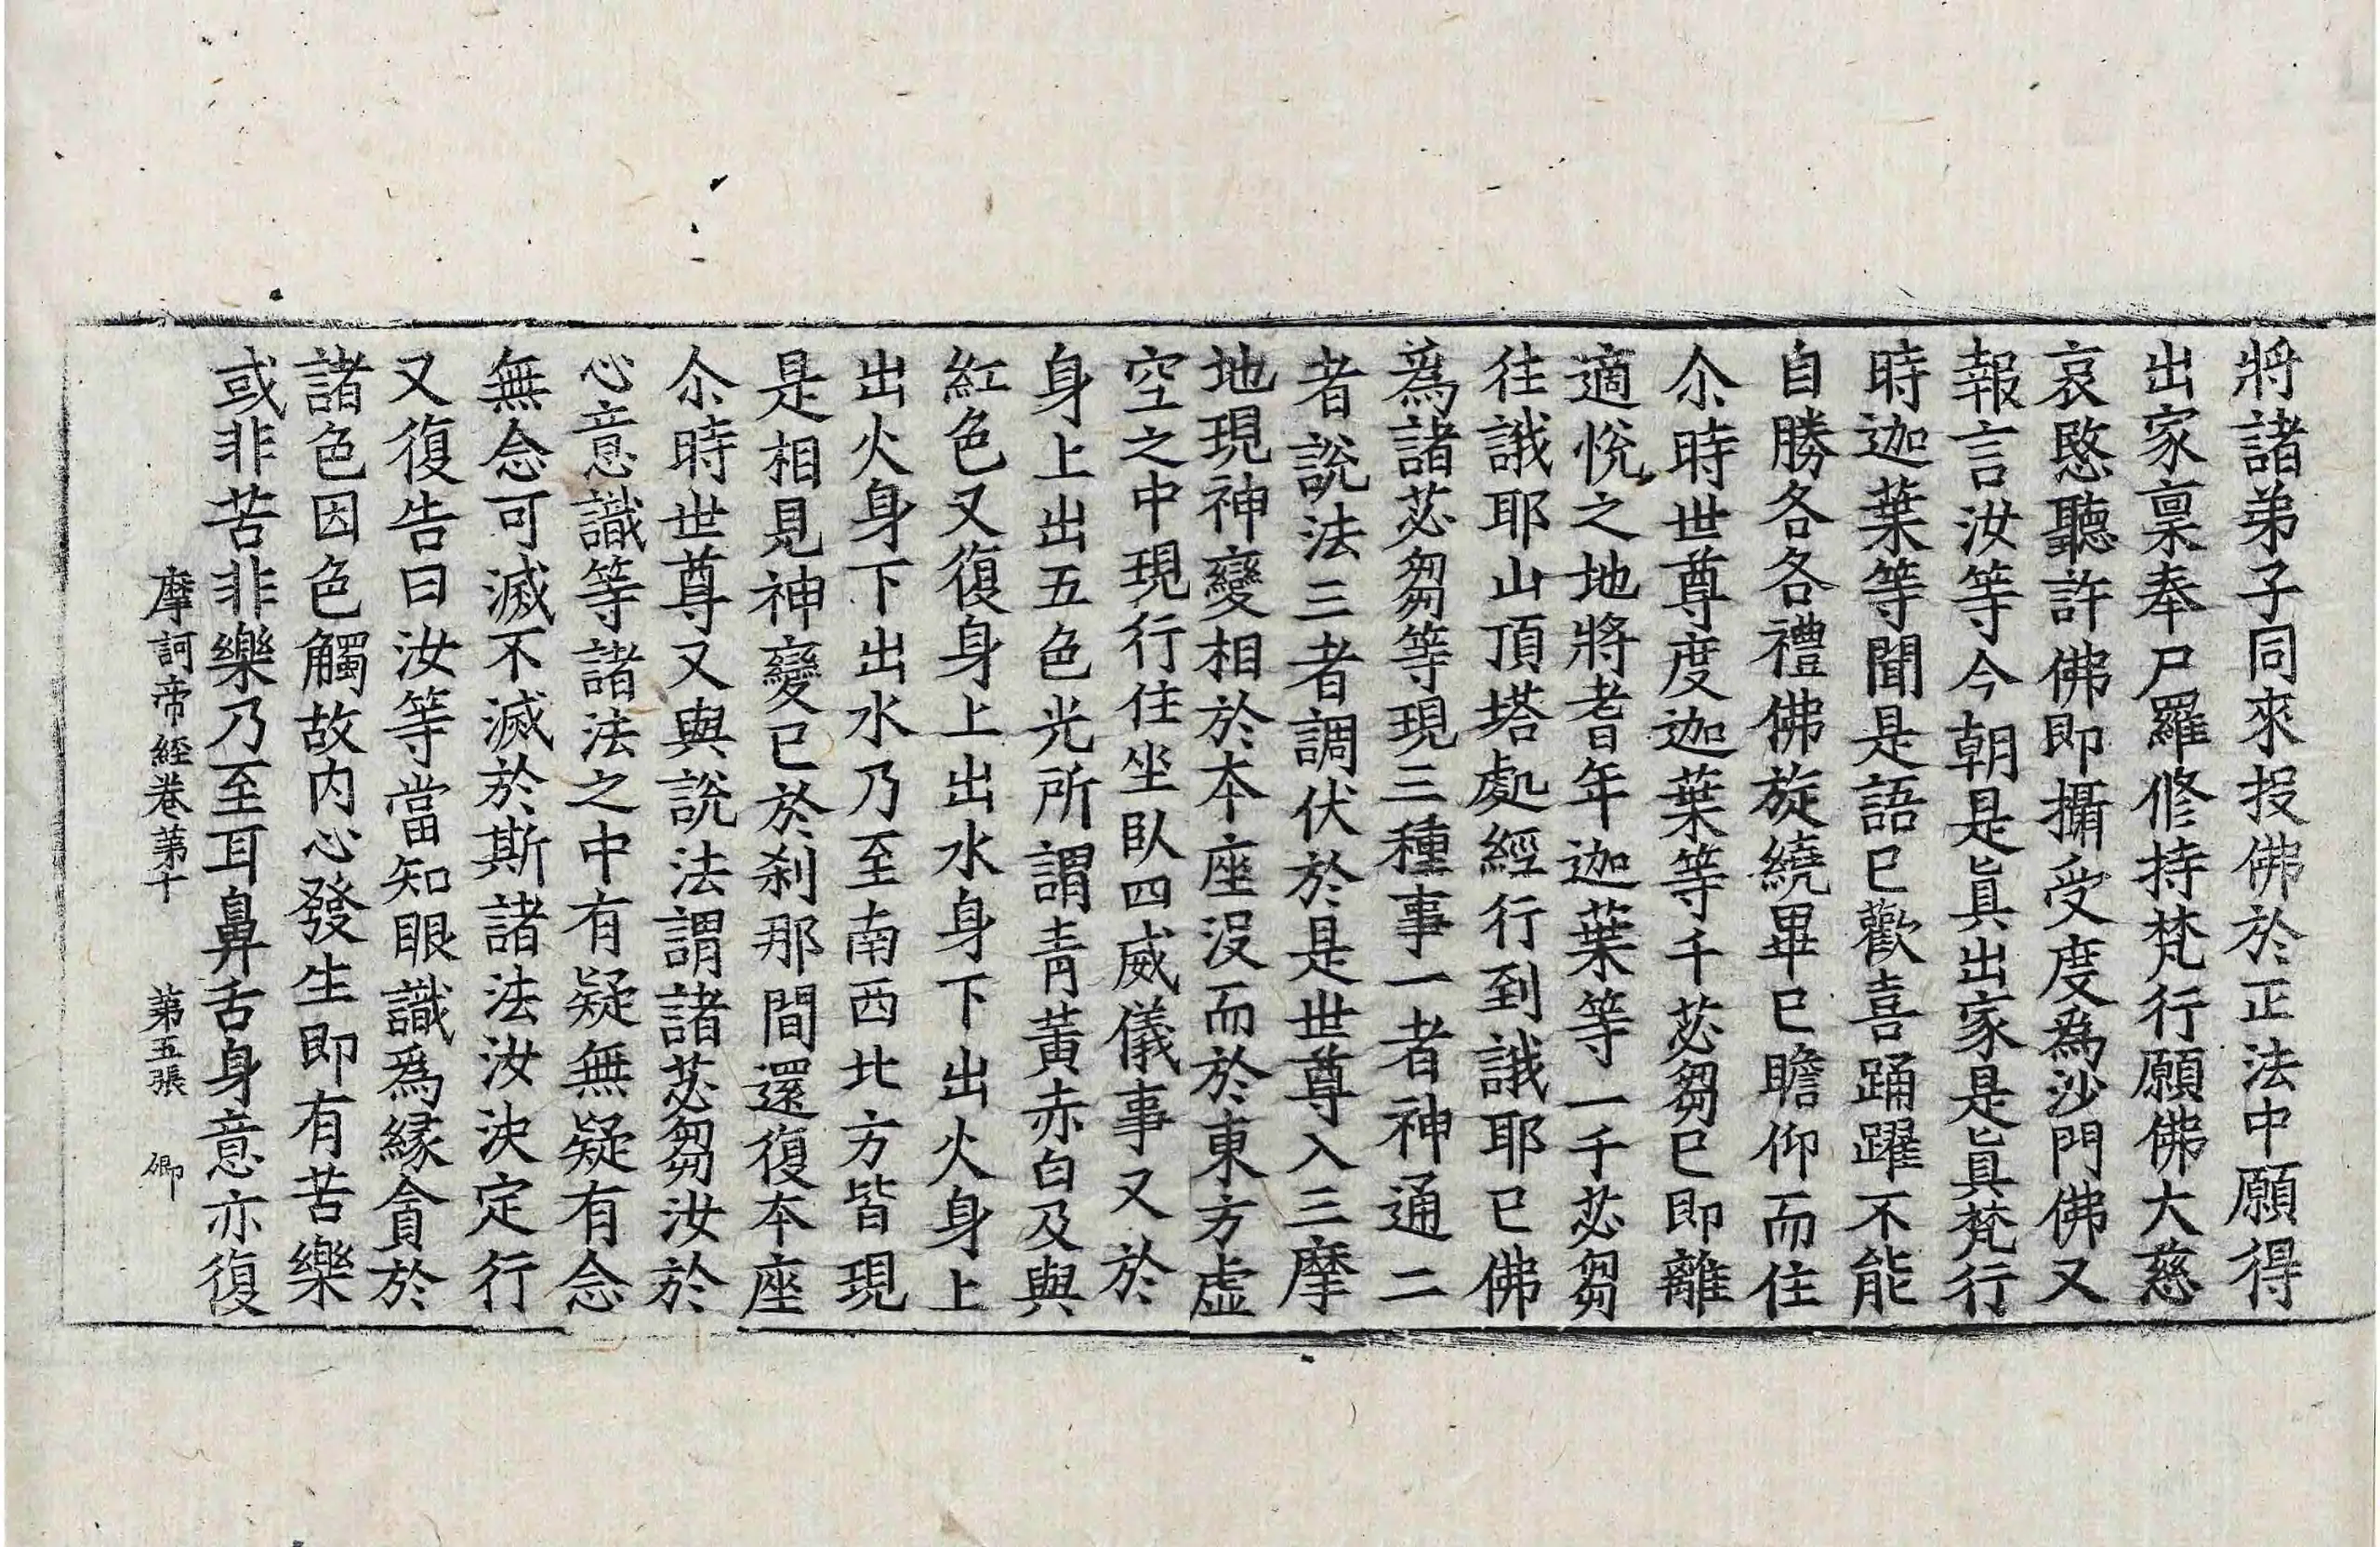 將諸弟子同來投佛於正法中願得
出家稟奉尸羅修持梵行願佛大慈
哀愍聽許佛即攝受度為沙門佛又
報言汝等今朝是眞出家是眞梵行
時迦葉等聞是語已歡喜踊躍不能
自勝各各禮佛旋繞畢已瞻仰而住
尒時世尊度迦葉等千苾芻已即離
適悅之地將耆年迦葉等一千苾芻
往誐耶山頂塔處經行到誐耶已佛
為諸苾芻等現三種事一者神通二
者說法三者調伏於是世尊入三摩
地現神變相於本座沒而於東方虛
空之中現行住坐臥四威儀事又於
身上出五色光所謂青黃赤白及與
紅色又復身上出水身下出火身上
出火身下出水乃至南西北方皆現
是相見神變已於刹那間還復本座
尒時世尊又與說法謂諸苾芻汝於
心意識等諸法之中有疑無疑有念
無念可滅不滅於斯諸法汝決定行
又復告曰汝等當知眼識為緣貪於
諸色因色觸故内心發生即有苦樂
或非苦非樂乃至耳鼻舌身意亦復
摩訶帝經卷第十 第五張 卿